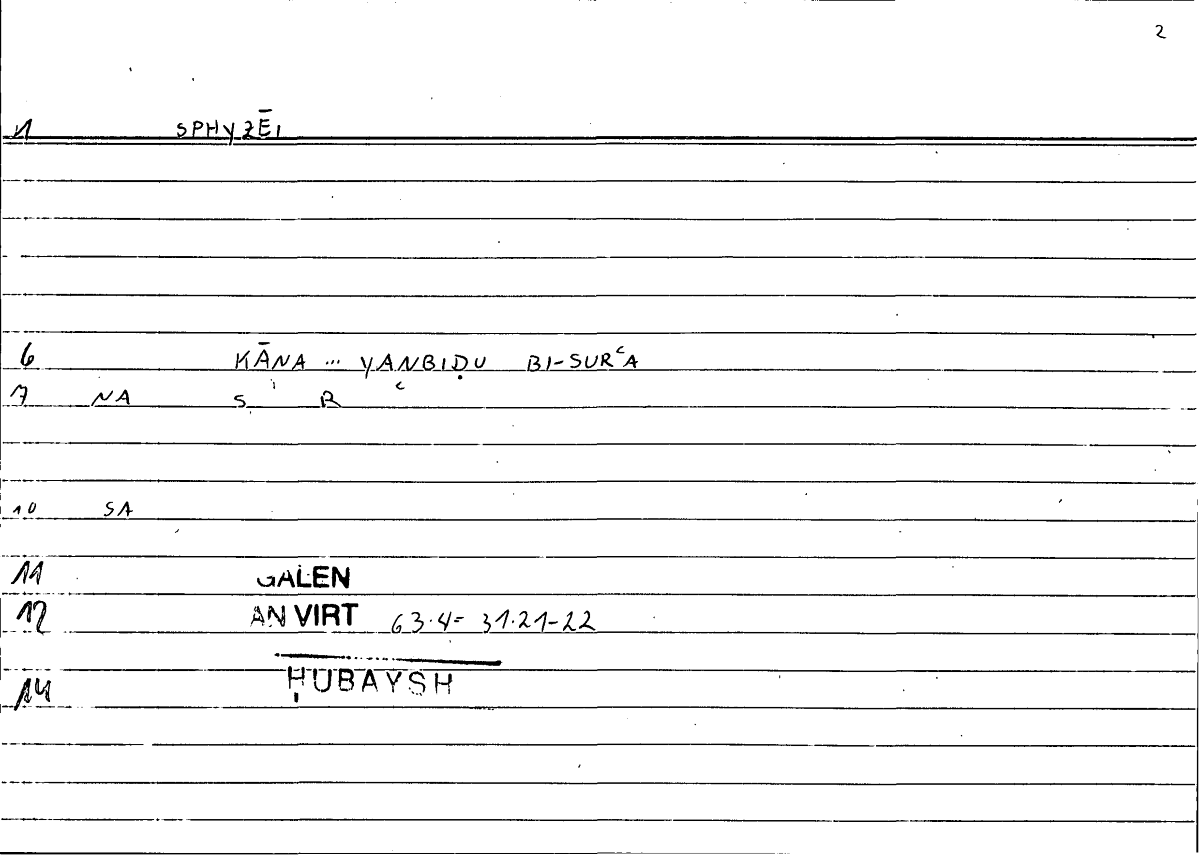 2
1 SPHYZĒI
6 KĀNA ... YANBIḌU BI-SURʿA
7 NA S R ʿ
10 SA
11 GALEN
12 AN VIRT 63.4= 31.21-22
14 ḤUBAYSH